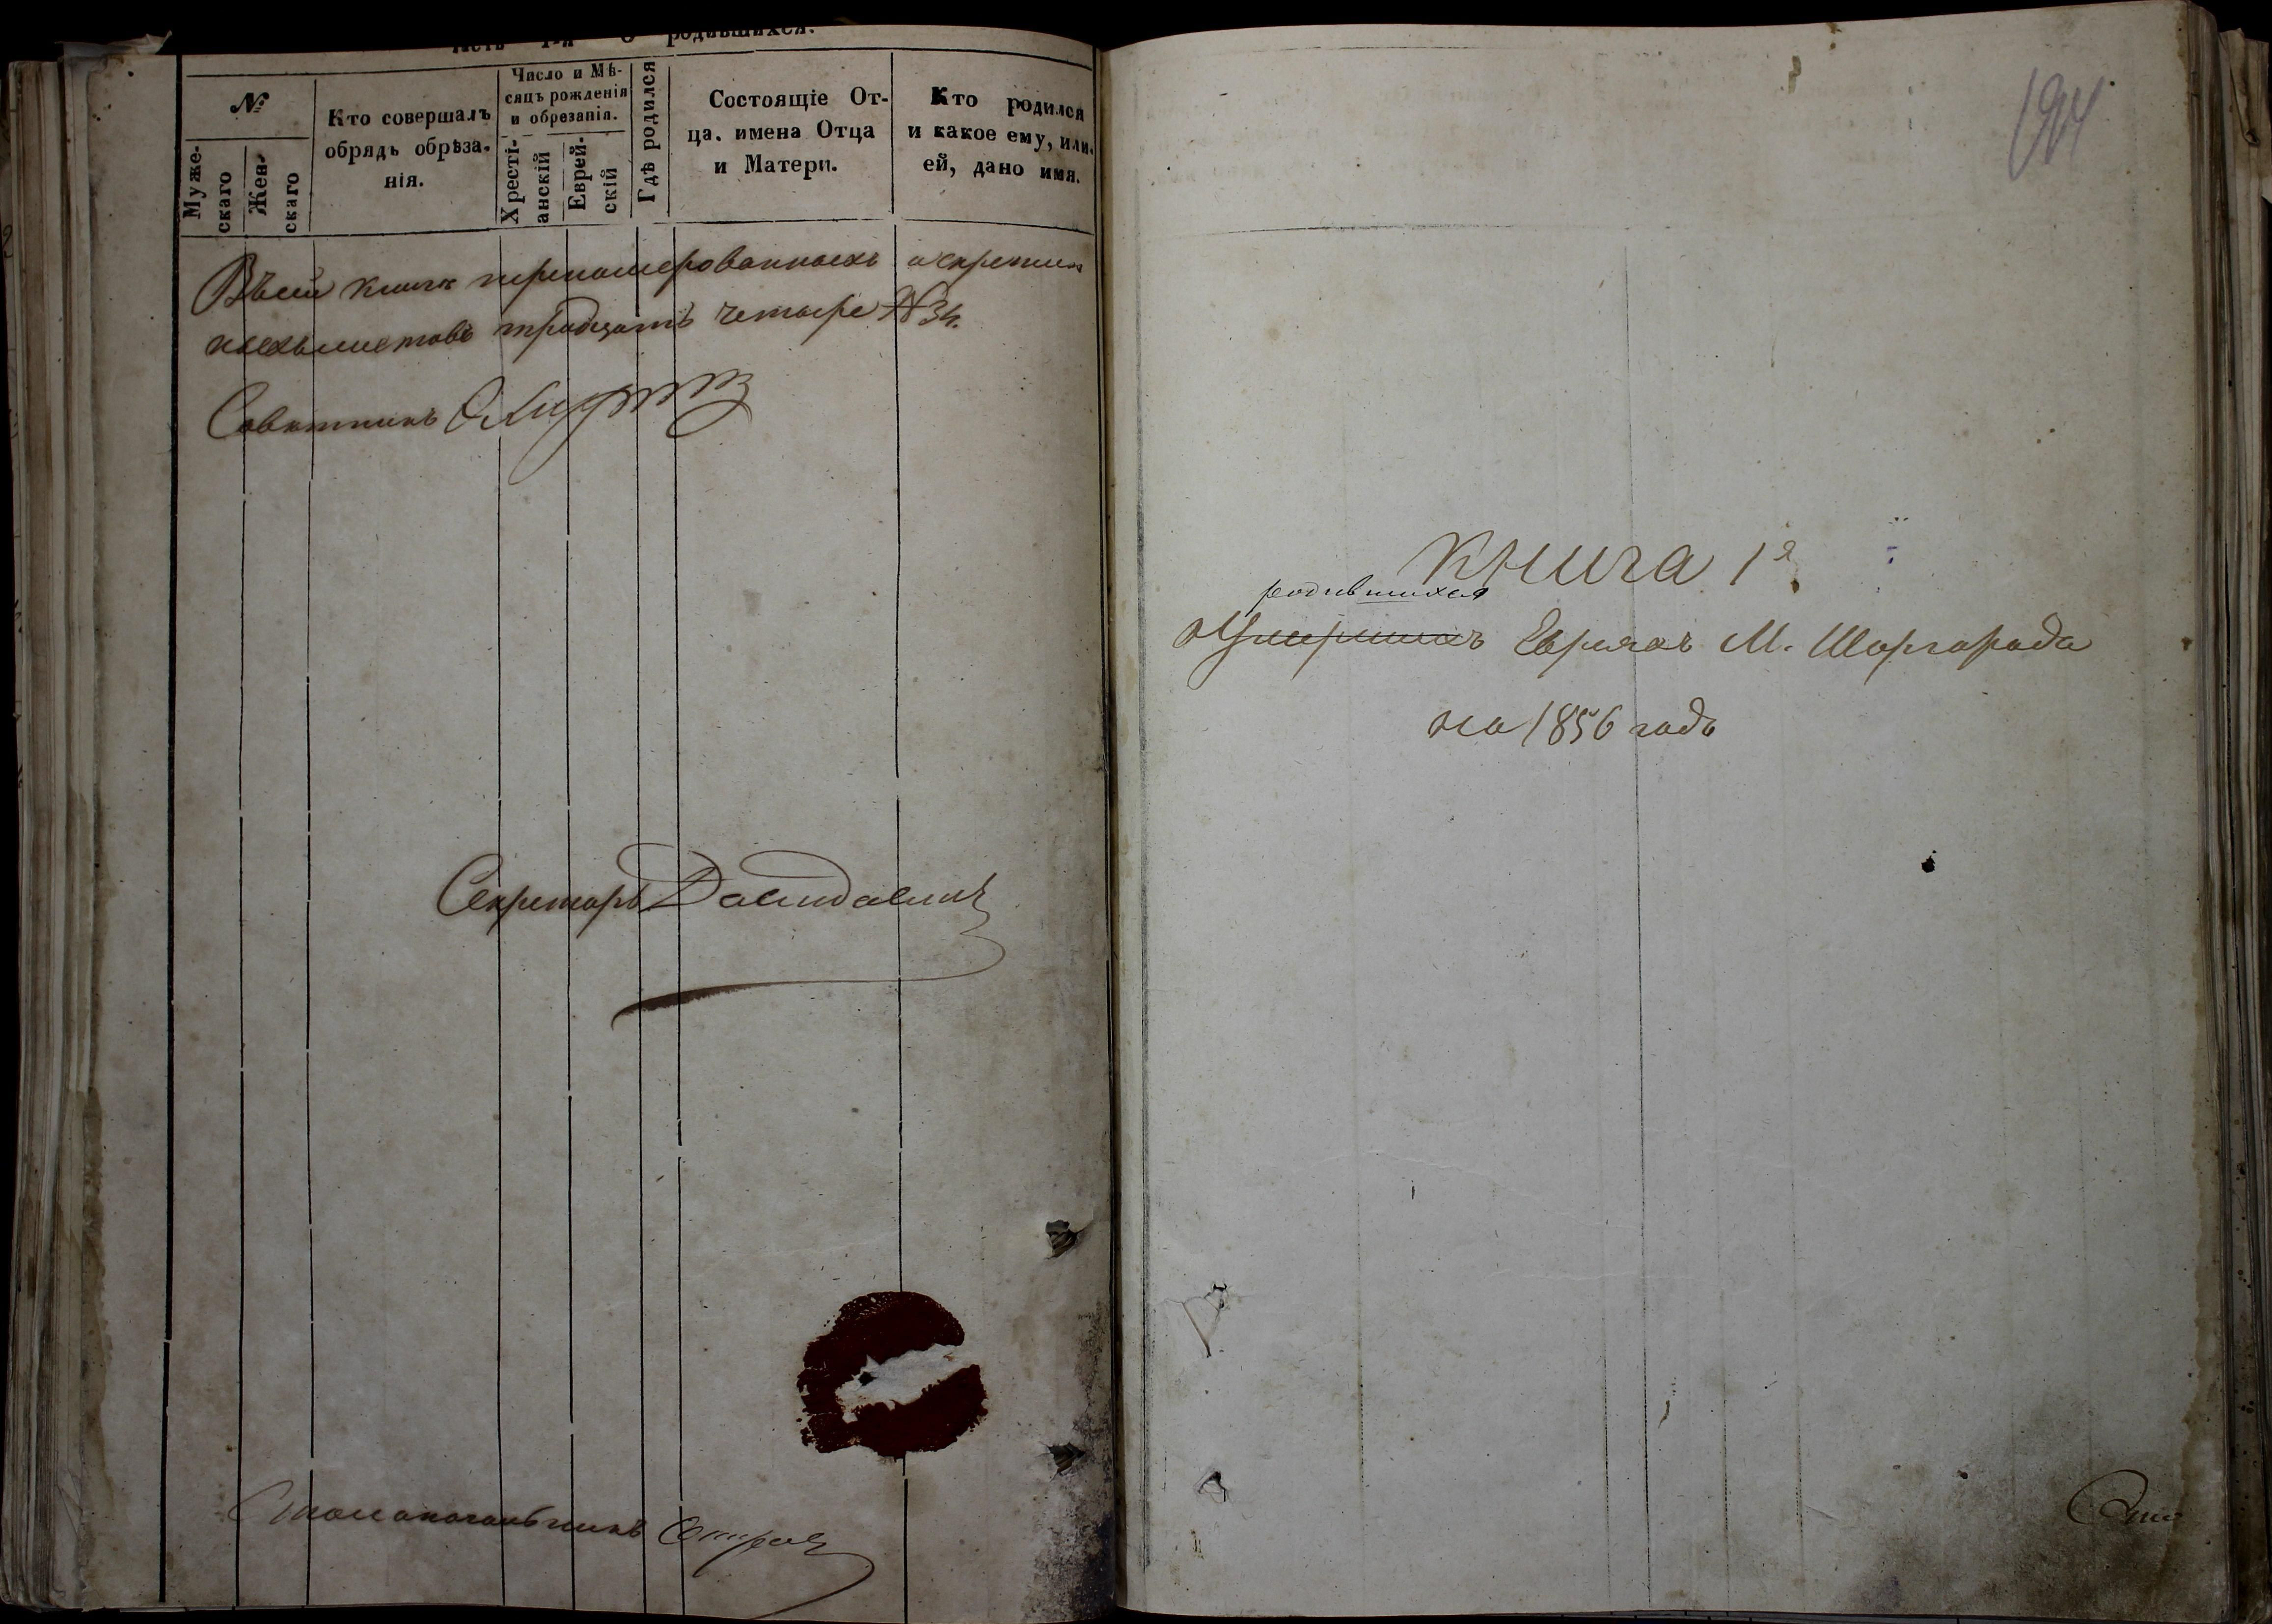 Часть 1-я О родившихся.
№
Муже-
скаго
Жен-
скаго
Кто совершалъ
обрядъ обрѣза-
нія.
Число и Мѣ-
сяцъ рожденія
и обрезанія.
Хресті-
анскій
Еврей-
скій
Гдѣ родился
Состоящіе От-
ца. имена Отца
и Матери.
Кто родился
и какое ему, или
ей, дано имя.
Въ сей книге перенумерованныхъ и скреплен
ныхъ листовъ тридцать четыре № 34.
Советникъ
Секретарь
Столоначальникъ
194
Книга 1я
родившихся
О Умершихъ Евреяхъ М. Шаргорода
на 1856 годъ